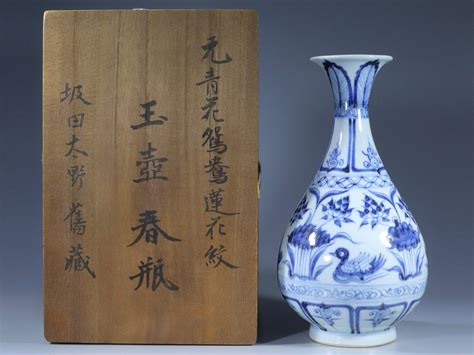 元青花鴛鴦蓮花紋
玉壺春瓶
坂田太野舊藏